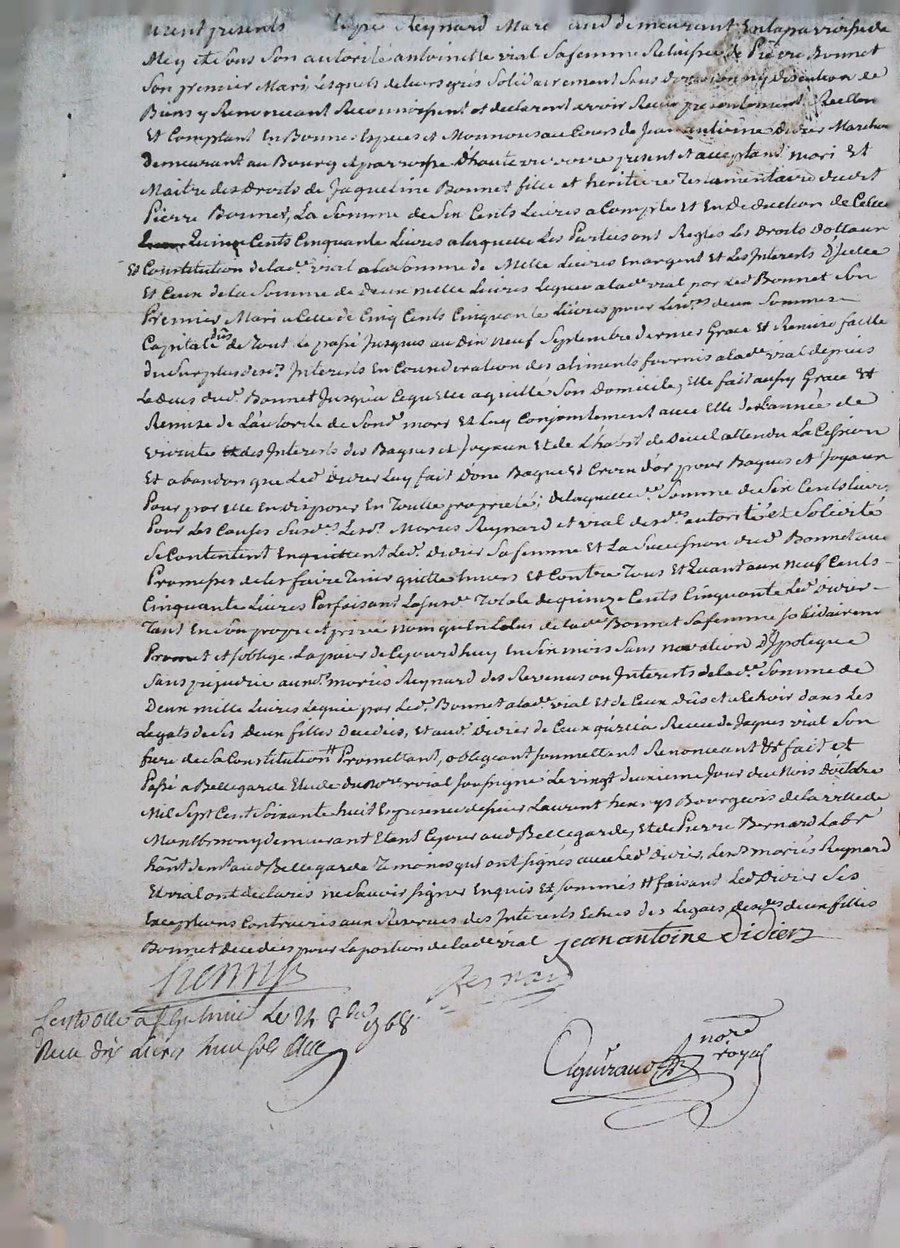 urent présents Reynard Marchand demeurant En la parroisse de
Mey Et sous Son autorité antoinette vial Sa femme Relaissée de Pierre Bonnet
Son premier Mari, Lesquels de leurs grés Solidairement Sans division ny discution de
Biens y Renonceant Reconnoissent et declarent avoir Receu presentement Reellem
Et Comptant En Bonnes Especes et Monnoies au Cours de Jean antoine Didier Marchand
demeurant au Bourg et parroisse present et acceptant mari Et
Maitre des Droits de Jaqueline Bonnet fille et heritiere Testamentaire dudit
Pierre Bonnet, La Somme de Six Cents Livres a Compte Et En Deduction de Celle
Quinze Cents Cinquante Livres a laquelle Les Parties ont Regles Les Droits dottaux
Et Constitution de lade vial a la Somme de Mille Livres En argent Et Les Interets D'Icelle
Et Ceux de la Somme de Deux mille Livres Leguée a lade vial par led Bonnet Son
Premier Mari a Celle de Cinq Cents Cinquante Livres pour Lesds deux Sommes
Capitales de Tout Le passé Jusques au Dix Neuf Septembre dernier Grace Et Remise faitte
du Surplus desds Interets En Consideration des aliments fournis a lade vial depuis
Le deces dud Bonnet Jusqu'a Ce qu'elle a quitté Son Domicile, Elle fait aussy Grace Et
Remise de L'autorité de Sond mari Et Luy Conjointement avec Elle de L'année de
viduité Et des Interets des Bagues et Joyaux Et de L'habit de Deuil attendu La Cession
Et abandon que Led Didier Luy fait d'une Bague Et Croix d'or pour Bagues et Joyaux
Pour par elle En disposer En Toutte propriete; De laquelle de Somme de Six Cents Livres
Pour Les Causes Susdes Lesds Mariés Reynard et vial desdes autorité et Solidité
Se Contentent Enquittent Led Didier Sa femme Et La Succession dud Bonnet avec
Promesses de les faire Tenir quittes Envers Et Contre Tous Et Quant aux Neuf Cents
Cinquante Livres Parfaisant La susde Totale de quinze Cents Cinquante Led Didier
Tant En Son propre et privé nom qu'En Celui de lade Bonnet Sa femme Solidairemt
Promet et s'oblige La payer de Cejourdhuy En Six mois Sans novation D'Ipoteque
Sans prejudice auxds mariés Reynard des Revenus ou Interets de lade Somme de
Deux mille Livres Leguée par Led Bonnet a lade vial Et de Ceux dûs et a Echoir dans Les
Legats de Ses deux filles Decedées, Et aud Didier de Ceux qu'elle a Receu de Jaques vial Son
frere de sa Constitution Promettant, obligeant soumettant Renonceant fait et
Passé a Bellegarde Etude du Nore royal soussigné Le vingt deuxieme Jour du Mois d'octobre
Mil Sept Cent Soixante huit En presence de sieur Laurent henrys Bourgeois de la ville de
Montbrison y demeurant Etant Cejour aud Bellegarde, Et de Pierre Bernard Labr
hant dent aud Bellegarde Temoins qui ont signés avec Led Didier, Lesds mariés Reynard
Et vial ont declarés ne Savoir signer Enquis Et Sommés faisant Led Didier Ses
Exceptions Contraires aux Reserves des Interets Echus des Legats desdes deux filles
Bonnet decedées pour La portion de lade vial jean antoine Didier
henrys
Bernard
Controllé a St Galmier Le 24 8bre 1768
Receu dix Livres huit sols
Aguiraud nore
royal